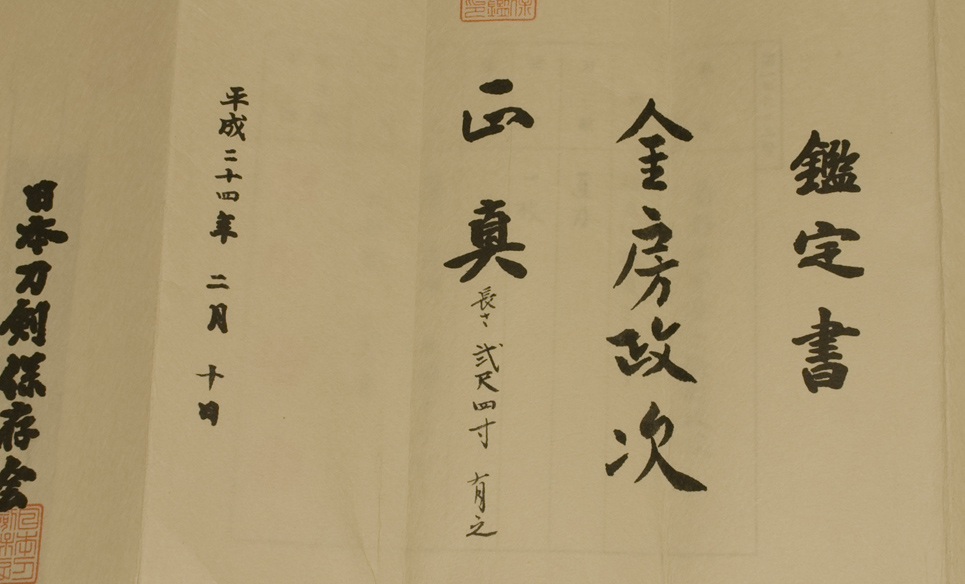 鑑定書
金房政次
正真 長サ 弐尺四寸 有之
平成二十四年 二月 十日
日本刀剣保存会